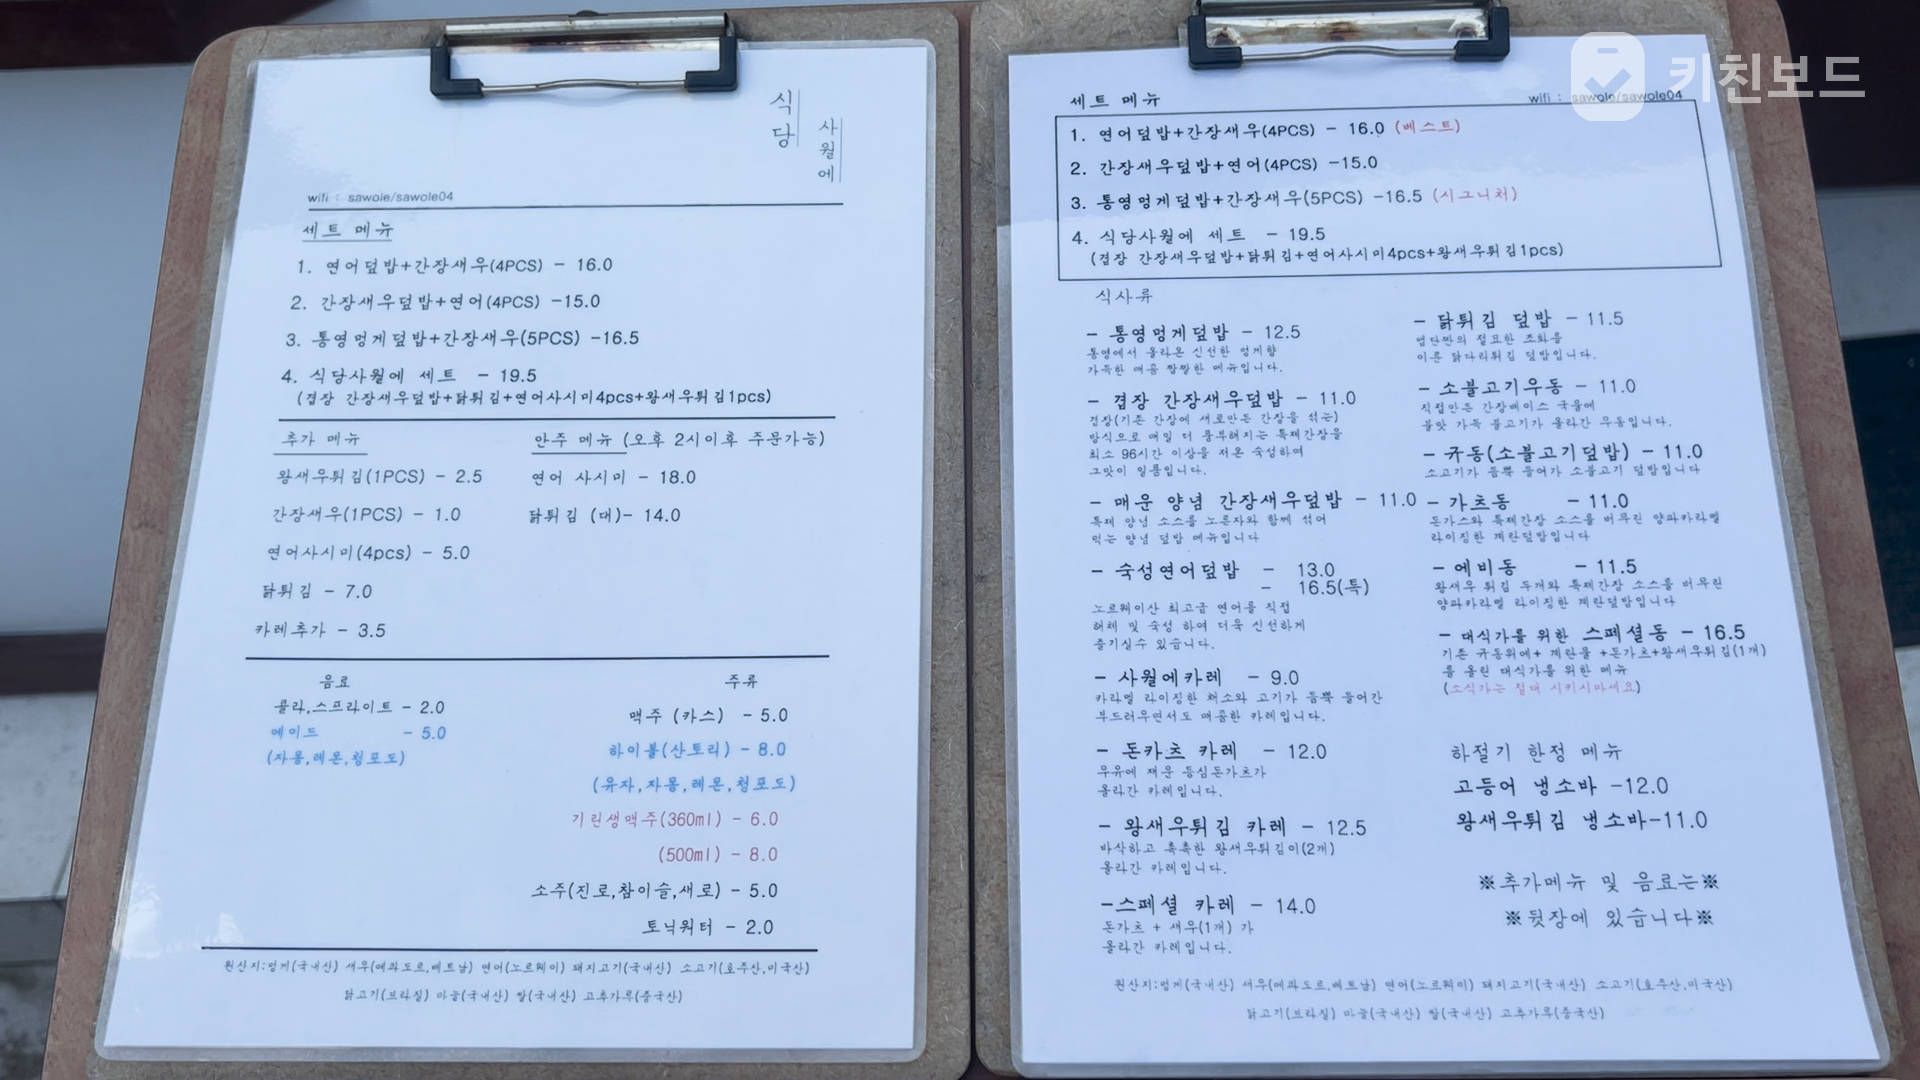 키친보드
식당
사월에
wifi : sawole/sawole04
세트 메뉴
1. 연어덮밥+간장새우(4PCS) - 16.0
2. 간장새우덮밥+연어(4PCS) -15.0
3. 통영멍게덮밥+간장새우(5PCS) -16.5
4. 식당사월에 세트 - 19.5
(겹장 간장새우덮밥+닭튀김+연어사시미4pcs+왕새우튀김1pcs)
추가 메뉴
왕새우튀김(1PCS) - 2.5
간장새우(1PCS) - 1.0
연어사시미(4pcs) - 5.0
닭튀김 - 7.0
카레추가 - 3.5
안주 메뉴 (오후 2시이후 주문가능)
연어 사시미 - 18.0
닭튀김 (대)- 14.0
음료
콜라,스프라이트 - 2.0
에이드 - 5.0
(자몽,레몬,청포도)
주류
맥주 (카스) - 5.0
하이볼(산토리) - 8.0
(유자,자몽,레몬,청포도)
기린생맥주(360ml) - 6.0
(500ml) - 8.0
소주(진로,참이슬,새로) - 5.0
토닉워터 - 2.0
원산지:멍게(국내산) 새우(에콰도르,베트남) 연어(노르웨이) 돼지고기(국내산) 소고기(호주산,미국산)
닭고기(브라질) 마늘(국내산) 쌀(국내산) 고추가루(중국산)
세트 메뉴
wifi : sawole/sawole04
1. 연어덮밥+간장새우(4PCS) - 16.0 (베스트)
2. 간장새우덮밥+연어(4PCS) -15.0
3. 통영멍게덮밥+간장새우(5PCS) -16.5 (시그니처)
4. 식당사월에 세트 - 19.5
(겹장 간장새우덮밥+닭튀김+연어사시미4pcs+왕새우튀김1pcs)
식사류
- 통영멍게덮밥 - 12.5
통영에서 올라온 신선한 멍게향
가득한 매콤 짭짤한 메뉴입니다.
- 겹장 간장새우덮밥 - 11.0
겹장(기존 간장에 새로만든 간장을 섞는)
방식으로 매일 더 풍부해지는 특제간장을
최소 96시간 이상을 저온 숙성하여
그맛이 일품입니다.
- 매운 양념 간장새우덮밥 - 11.0
특제 양념 소스를 노른자와 함께 섞어
먹는 양념 덮밥 메뉴입니다
- 숙성연어덮밥 - 13.0
- 16.5(특)
노르웨이산 최고급 연어를 직접
해체 및 숙성 하여 더욱 신선하게
즐기실수 있습니다.
- 사월에카레 - 9.0
카라멜 라이징한 채소와 고기가 듬뿍 들어간
부드러우면서도 매콤한 카레입니다.
- 돈카츠 카레 - 12.0
우유에 재운 등심돈가츠가
올라간 카레입니다.
- 왕새우튀김 카레 - 12.5
바삭하고 촉촉한 왕새우튀김이(2개)
올라간 카레입니다.
-스페셜 카레 - 14.0
돈가츠 + 새우(1개) 가
올라간 카레입니다.
- 닭튀김 덮밥 - 11.5
맵단짠의 절묘한 조화를
이룬 닭다리튀김 덮밥입니다.
- 소불고기우동 - 11.0
직접만든 간장베이스 국물에
불맛 가득 불고기가 올라간 우동입니다.
- 규동(소불고기덮밥) - 11.0
소고기가 듬뿍 들어가 소불고기 덮밥입니다
- 가츠동 - 11.0
돈가스와 특제간장 소스를 버무린 양파카라멜
라이징한 계란덮밥입니다
- 에비동 - 11.5
왕새우 튀김 두개와 특제간장 소스를 버무린
양파카라멜 라이징한 계란덮밥입니다
- 대식가를 위한 스페셜동 - 16.5
기존 규동위에+ 계란물 +돈가츠+왕새우튀김(1개)
를 올린 대식가를 위한 메뉴
(소식가는 절대 시키시마세요)
하절기 한정 메뉴
고등어 냉소바 -12.0
왕새우튀김 냉소바-11.0
※추가메뉴 및 음료는※
※뒷장에 있습니다※
원산지:멍게(국내산) 새우(에콰도르,베트남) 연어(노르웨이) 돼지고기(국내산) 소고기(호주산,미국산)
닭고기(브라질) 마늘(국내산) 쌀(국내산) 고추가루(중국산)